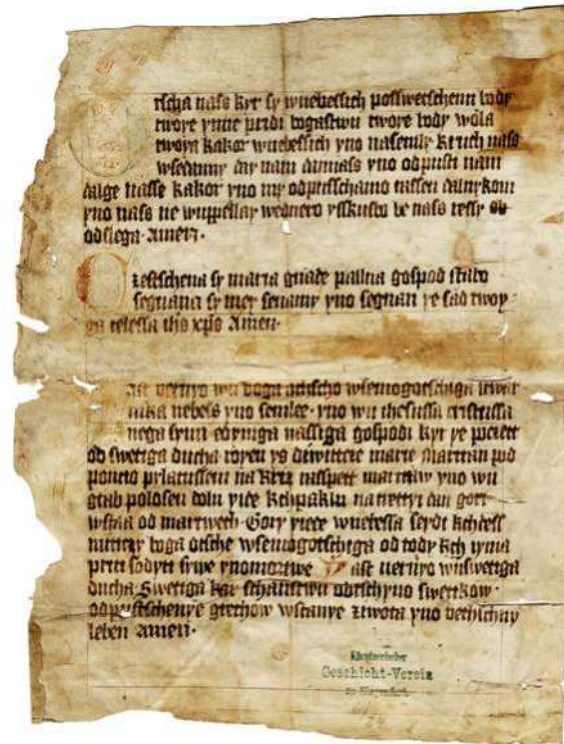 24
tscha nass kyr sy wnebessich posswetschenu body
twoye yme pridi bogastwu twoye body wola
twoya kakor wnebessich yno nasemly kruch nass
wsedanny day nam dannass yno odpusti nam
dalge nasse kakor yno my odpusschamo nassen dalnykom
yno nass ne wuppellay wednero ysskusbo le nass ressy od
odslega Amen.
Czestschena sy maria gnade pallna gospod stabo
segnana sy mey sewamy yno segnan ye sad twoy
ga telessa ihs xps Amen.
ast veruyo wu boga otscho wsemogotschiga stwar
nika nebess yno semlee yno wu ihesussa cristussa
nega synu edyniga nassiga gospodi kyr ye pociett
od swetiga ducha royen ys diwittete marie martran pod
poncio pylatussem na kriz rasspett martaw yno wu
grab polosen dolu yide kchpaklu na tretyi dan gori
wstaa od martwech Gory yiede wnebessa sedyi kchtess
nittzy boga otsche wsemogotschiga od tody kch yma
priti soditi sywe yno mortwe ast veruyo wu swetiga
ducha Swetiga karschanstwu obtschyno swetkow
odpustschenye grechow wstanye zwota yno vethtschny
leben Amen.
Kärntnerischer
Geschicht-Verein
zu Klagenfurt